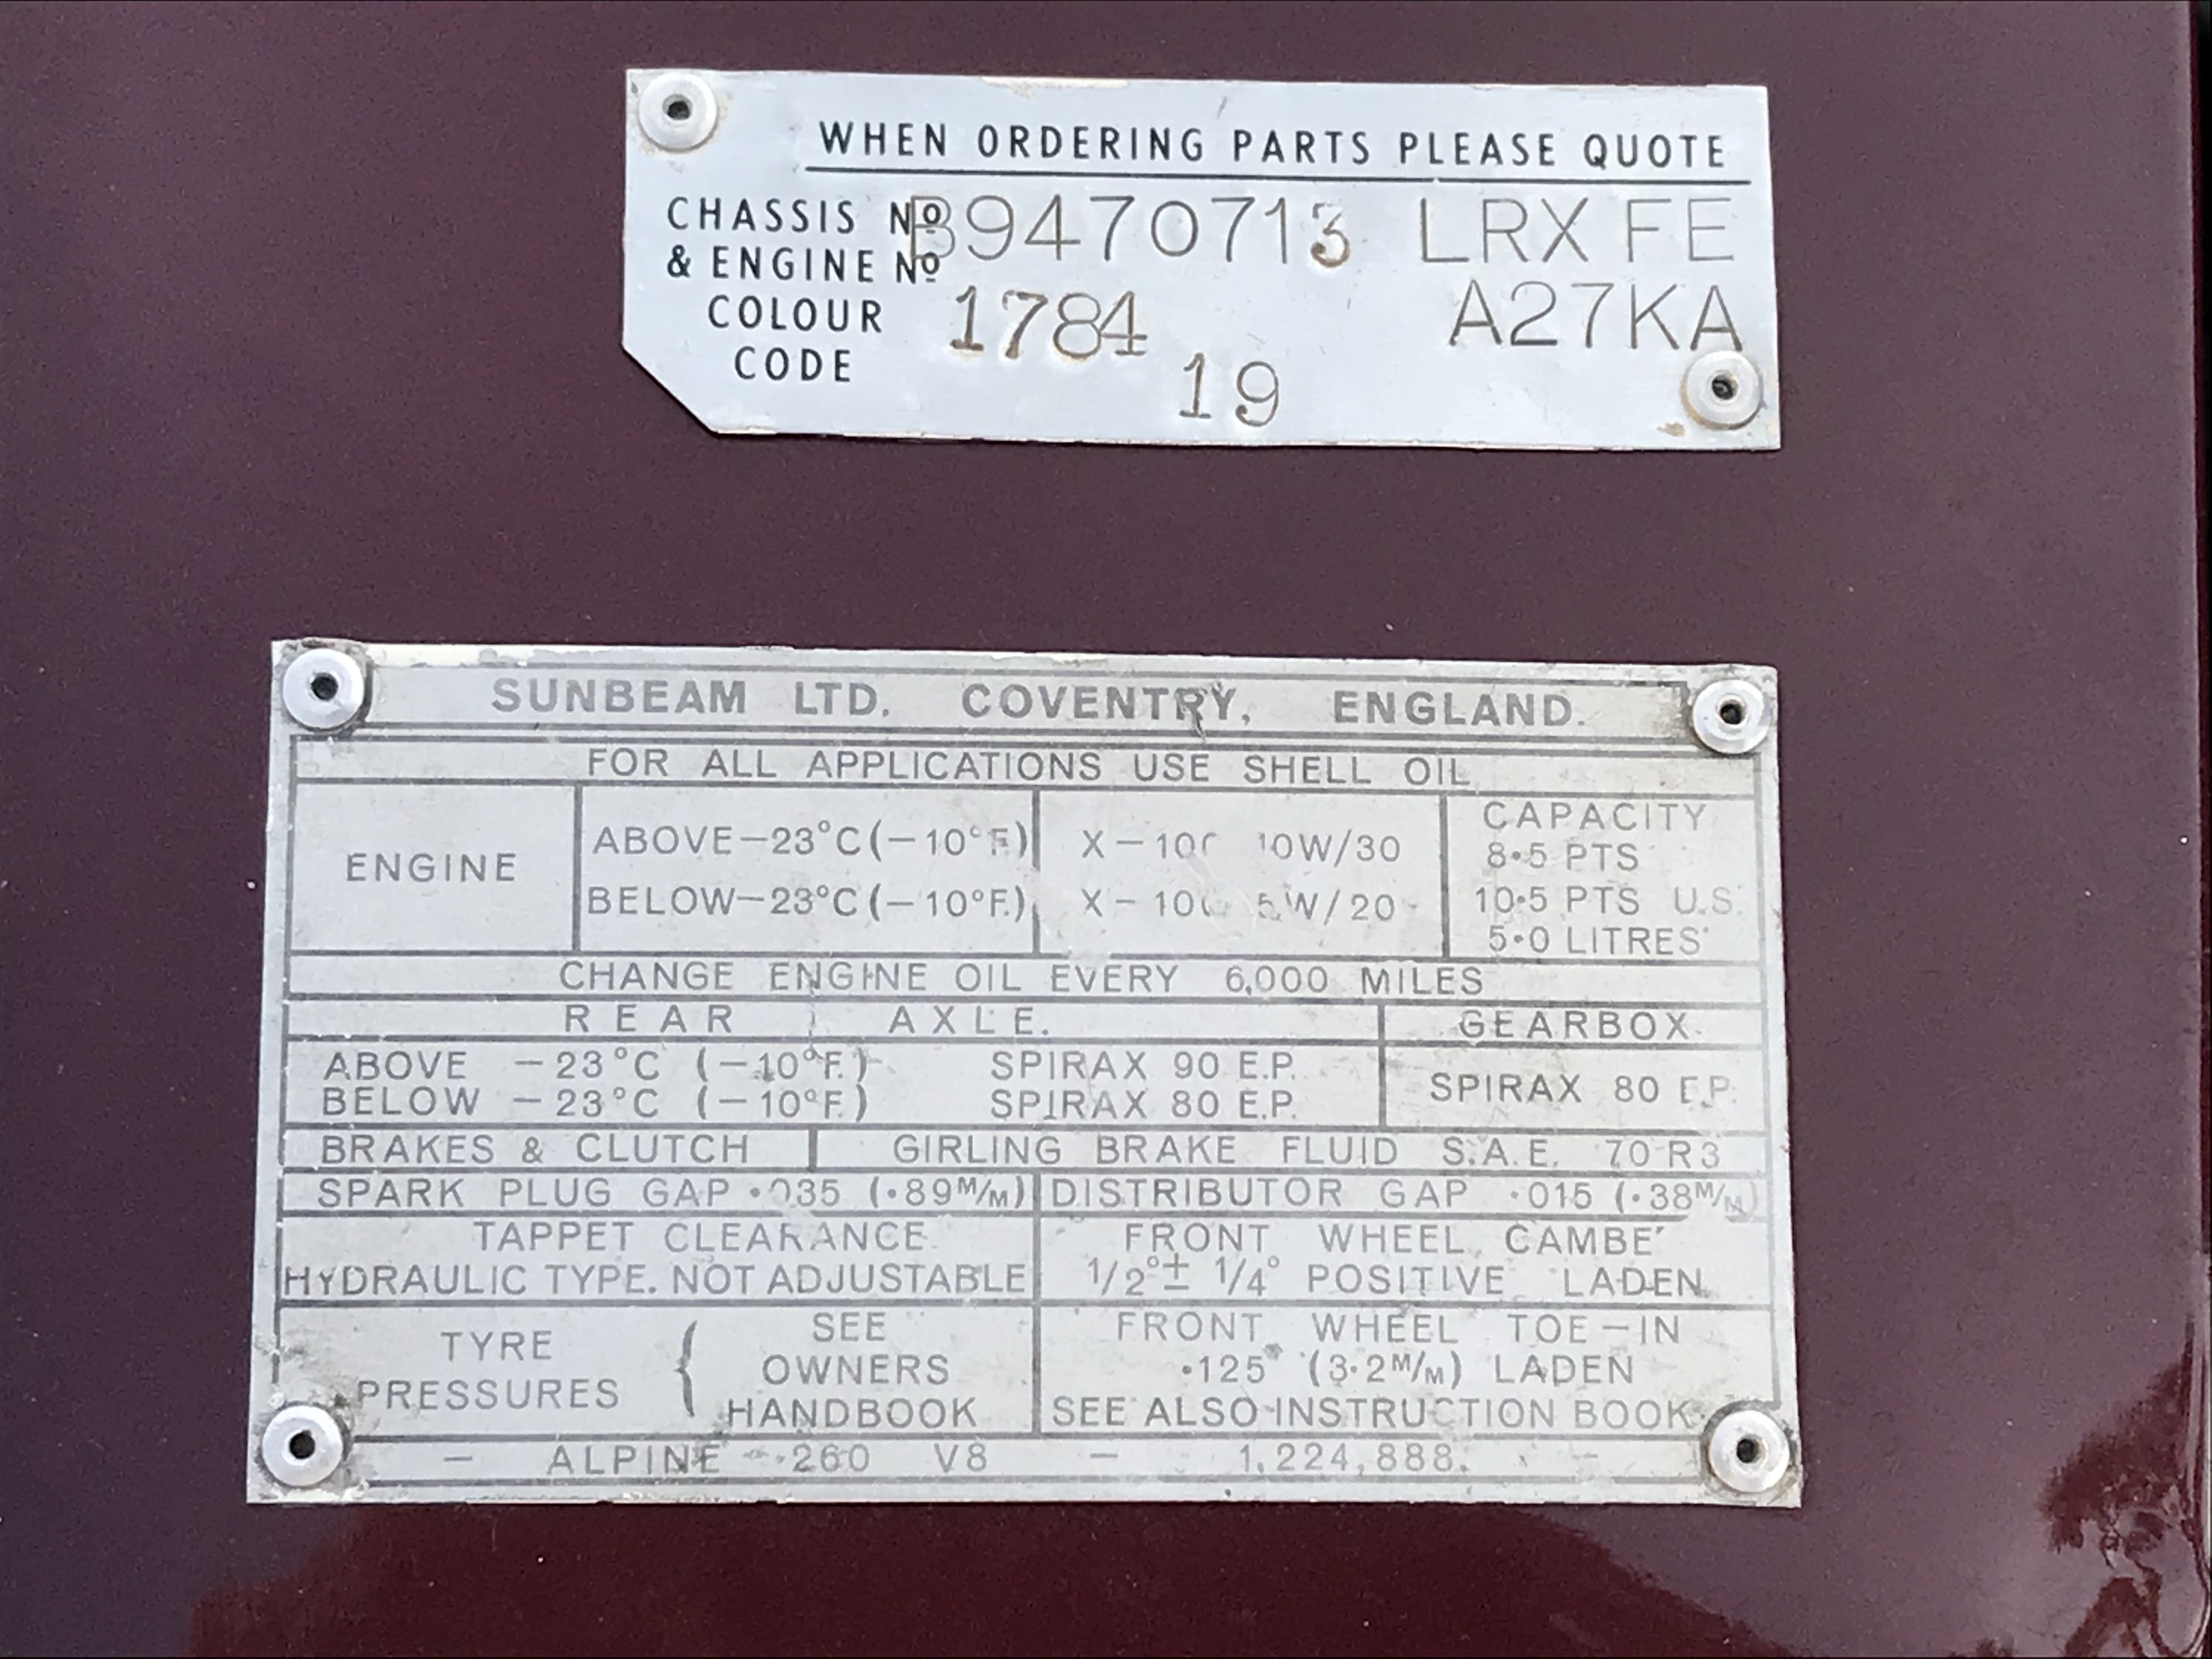 WHEN ORDERING PARTS PLEASE QUOTE
CHASSIS Nº B9470713 LRX FE
& ENGINE Nº
COLOUR 1784 A27KA
CODE 19
SUNBEAM LTD. COVENTRY, ENGLAND.
FOR ALL APPLICATIONS USE SHELL OIL
CAPACITY
ENGINE ABOVE -23°C (-10°F.) 10W/30 8·5 PTS
BELOW -23°C (-10°F.) 5W/20 10·5 PTS U.S.
5·0 LITRES
CHANGE ENGINE OIL EVERY 6,000 MILES
REAR AXLE. GEARBOX.
ABOVE -23°C (-10°F.) SPIRAX 90 E.P.
SPIRAX 80 E.P.
BELOW -23°C (-10°F.) SPIRAX 80 E.P.
BRAKES & CLUTCH GIRLING BRAKE FLUID S.A.E. 70 R3
SPARK PLUG GAP ·035 (·89M/M) DISTRIBUTOR GAP ·015 (·38M/M)
TAPPET CLEARANCE FRONT WHEEL
HYDRAULIC TYPE. NOT ADJUSTABLE 1/2° ± 1/4° POSITIVE LADEN.
TYRE
PRESSURES {
SEE
OWNERS
HANDBOOK
FRONT WHEEL TOE-IN
·125" (3·2M/M) LADEN
SEE ALSO INSTRUCTION BOOK
- ALPINE - 260 V8 - 1,224,888. -